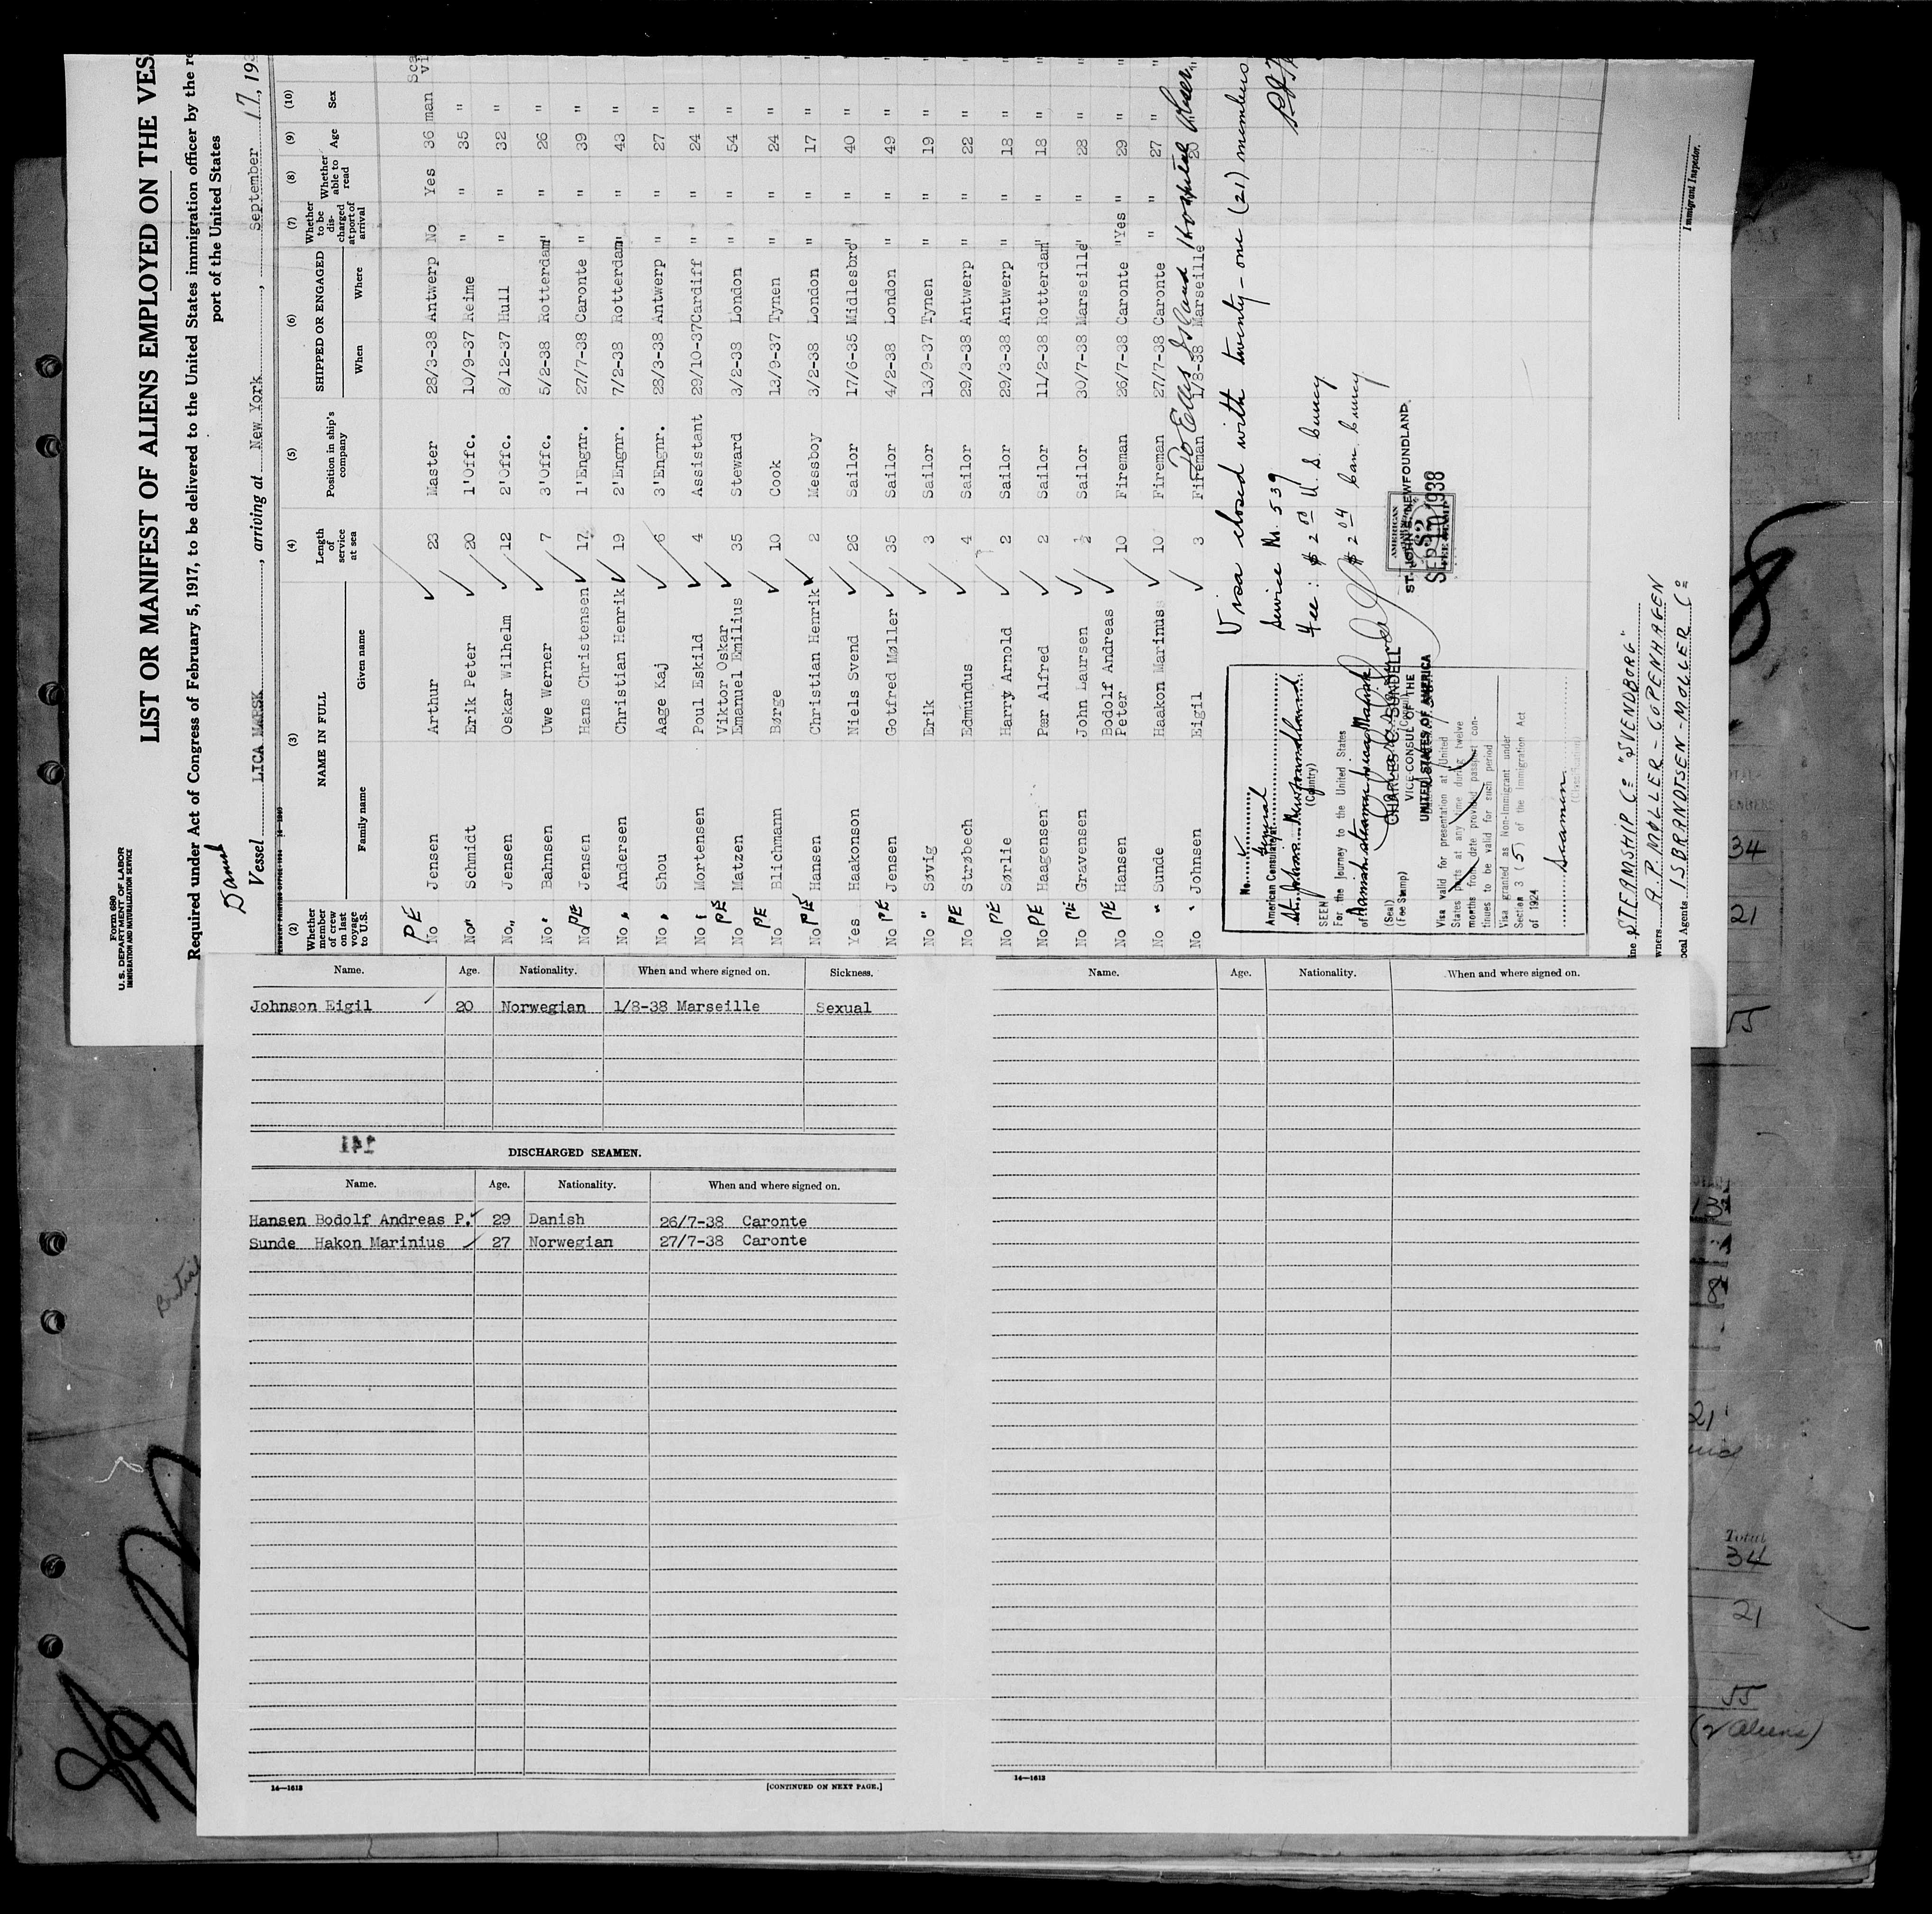 Form 680
U.S. DEPARTMENT OF LABOR
IMMIGRATION AND NATURALIZATION SERVICE
LIST OR MANIFEST OF ALIENS EMPLOYED ON THE VES
Required under Act of Congress of February 5, 1917, to be delivered to the United States immigration officer by the re
port of the United States
Danish
Vessel LICA MÆRSK, arriving at New York, September 17, 193
(2) (3) (4) (5) (6) (7) (8) (9) (10)
Whether member of crew on last voyage to U.S. NAME IN FULL Family name Given name Length of service at sea Position in ship's company SHIPPED OR ENGAGED When Where Whether to be discharged at port of arrival Whether able to read Age Sex
PE No Jensen Arthur 23 Master 28/3-38 Antwerp No Yes 36 man
No " Schmidt Erik Peter 20 1'Offc. 10/9-37 Reime " " 35 "
No " Jensen Oskar Wilhelm 12 2'Offc. 8/12-37 Hull " " 32 "
No " Bahnsen Uwe Werner 7 3'Offc. 5/2-38 Rotterdam " " 26 "
No PE Jensen Hans Christensen 17 1'Engnr. 27/7-38 Caronte " " 39 "
No " Andersen Christian Henrik 19 2'Engnr. 7/2-38 Rotterdam " " 43 "
No " Shou Aage Kaj 6 3'Engnr. 28/3-38 Antwerp " " 27 "
No " Mortensen Poul Eskild 4 Assistant 29/10-37 Cardiff " " 24 "
No PE Matzen Viktor Oskar Emanuel Emilius 35 Steward 3/2-38 London " " 54 "
No PE Blichmann Børge 10 Cook 13/9-37 Tynen " " 24 "
No PE Hansen Christian Henrik 2 Messboy 3/2-38 London " " 17 "
Yes Haakonson Niels Svend 26 Sailor 17/6-35 Midlesbro " " 40 "
No PE Jensen Gotfred Møller 35 Sailor 4/2-38 London " " 49 "
No " Søvig Erik 3 Sailor 13/9-37 Tynen " " 19 "
No PE Strøbech Edmundus 4 Sailor 29/3-38 Antwerp " " 22 "
No PE Sørlie Harry Arnold 2 Sailor 29/3-38 Antwerp " " 18 "
No PE Haagensen Per Alfred 2 Sailor 11/2-38 Rotterdam " " 18 "
No PE Gravensen John Laursen ½ Sailor 30/7-38 Marseille " " 28 "
No PE Hansen Bodolf Andreas Peter 10 Fireman 26/7-38 Caronte "Yes " 29 "
No " Sunde Haakon Marinus 10 Fireman 27/7-38 Caronte " " 27 "
No " Johnsen Eigil 3 Fireman 1/8-38 Marseille 20
To Ellis Island Hospital
Visa closed with twenty-one (21) members
Service No. 539
Fee: $2 00 U.S. Curency
$2 04 Can. Curency
No. V
American Consulate General
at St. Johns Newfoundland
(Country)
SEEN
For the journey to the United States
of Danish steamer Lica Maersk
(Seal)
(Fee Stamp)
CHARLES C. SUNDELL
VICE CONSUL OF THE
UNITED STATES OF AMERICA
Visa valid for presentation at United
States ports at any time during twelve
months from date provided passport con-
tinues to be valid for such period
Visa granted as Non-Immigrant under
Section 3 (5) of the Immigration Act
of 1924
Seamen
AMERICAN
ST. JOHN'S, NEWFOUNDLAND.
SEP 10 1938
STEAMSHIP Co "SVENDBORG"
wners A.P. MØLLER - COPENHAGEN
ocal Agents ISBRANDTSEN-MOLLER Co
Immigrant Inspector.
Name. Age. Nationality. When and where signed on. Sickness.
Johnson Eigil 20 Norwegian 1/8-38 Marseille Sexual
141
DISCHARGED SEAMEN.
Name. Age. Nationality. When and where signed on.
Hansen Bodolf Andreas P. 29 Danish 26/7-38 Caronte
Sunde Hakon Marinius 27 Norwegian 27/7-38 Caronte
14—1613
[CONTINUED ON NEXT PAGE.]
Name. Age. Nationality. When and where signed on.
14—1613
34
21
55
13
8
21
Total
34
21
55
(2 aliens)